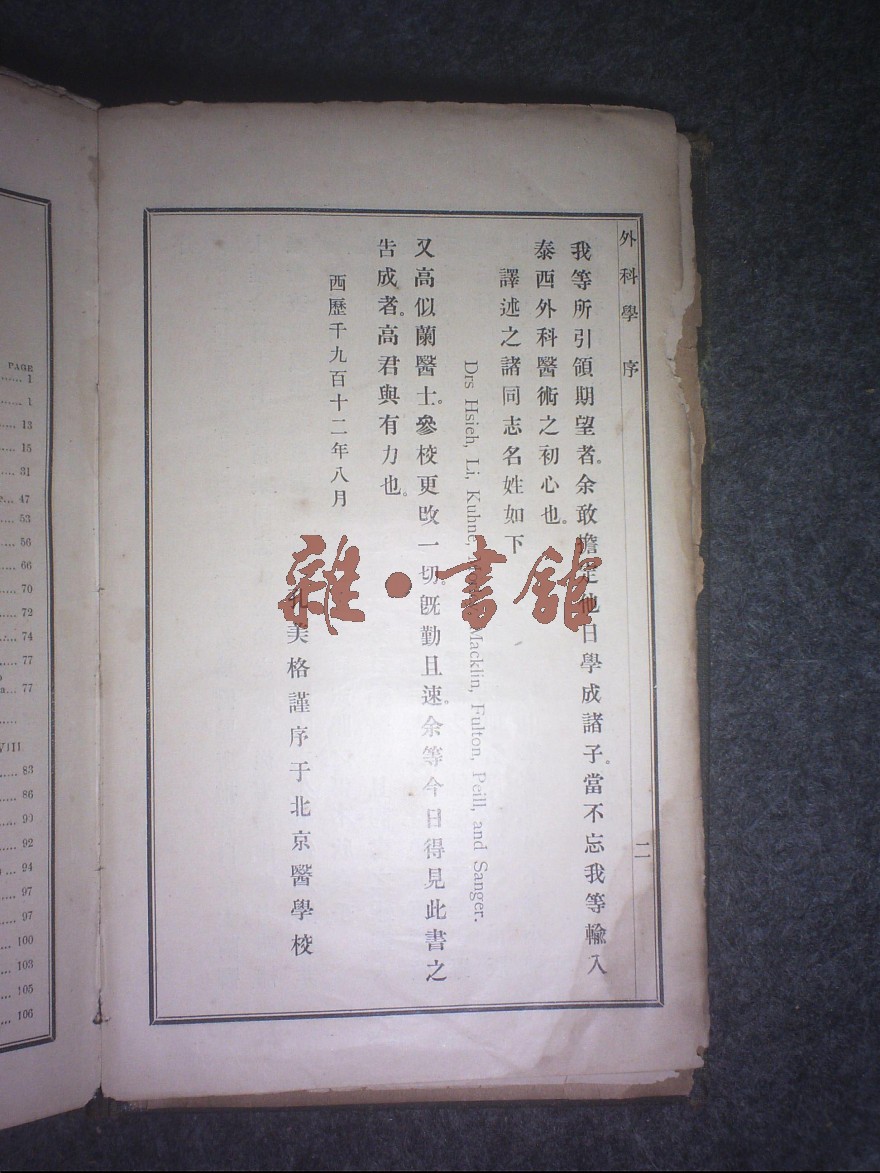 外科學 序
二
我等所引領期望者。余敢擔定他日學成諸子。當不忘我等輸入
泰西外科醫術之初心也。
譯述之諸同志名姓如下
Drs Hsieh, Li, Kuhne, Macklin, Fulton, Peill, and Sanger.
又高似蘭醫士。參校更改一切。旣勤且速。余等今日得見此書之
告成者。高君與有力也。
西歷千九百十二年八月
美格謹序于北京醫學校
雜·書舘
PAGE
1
1
13
15
31
47
53
56
66
70
72
74
77
77
VIII
83
86
90
92
94
97
97
100
103
105
106